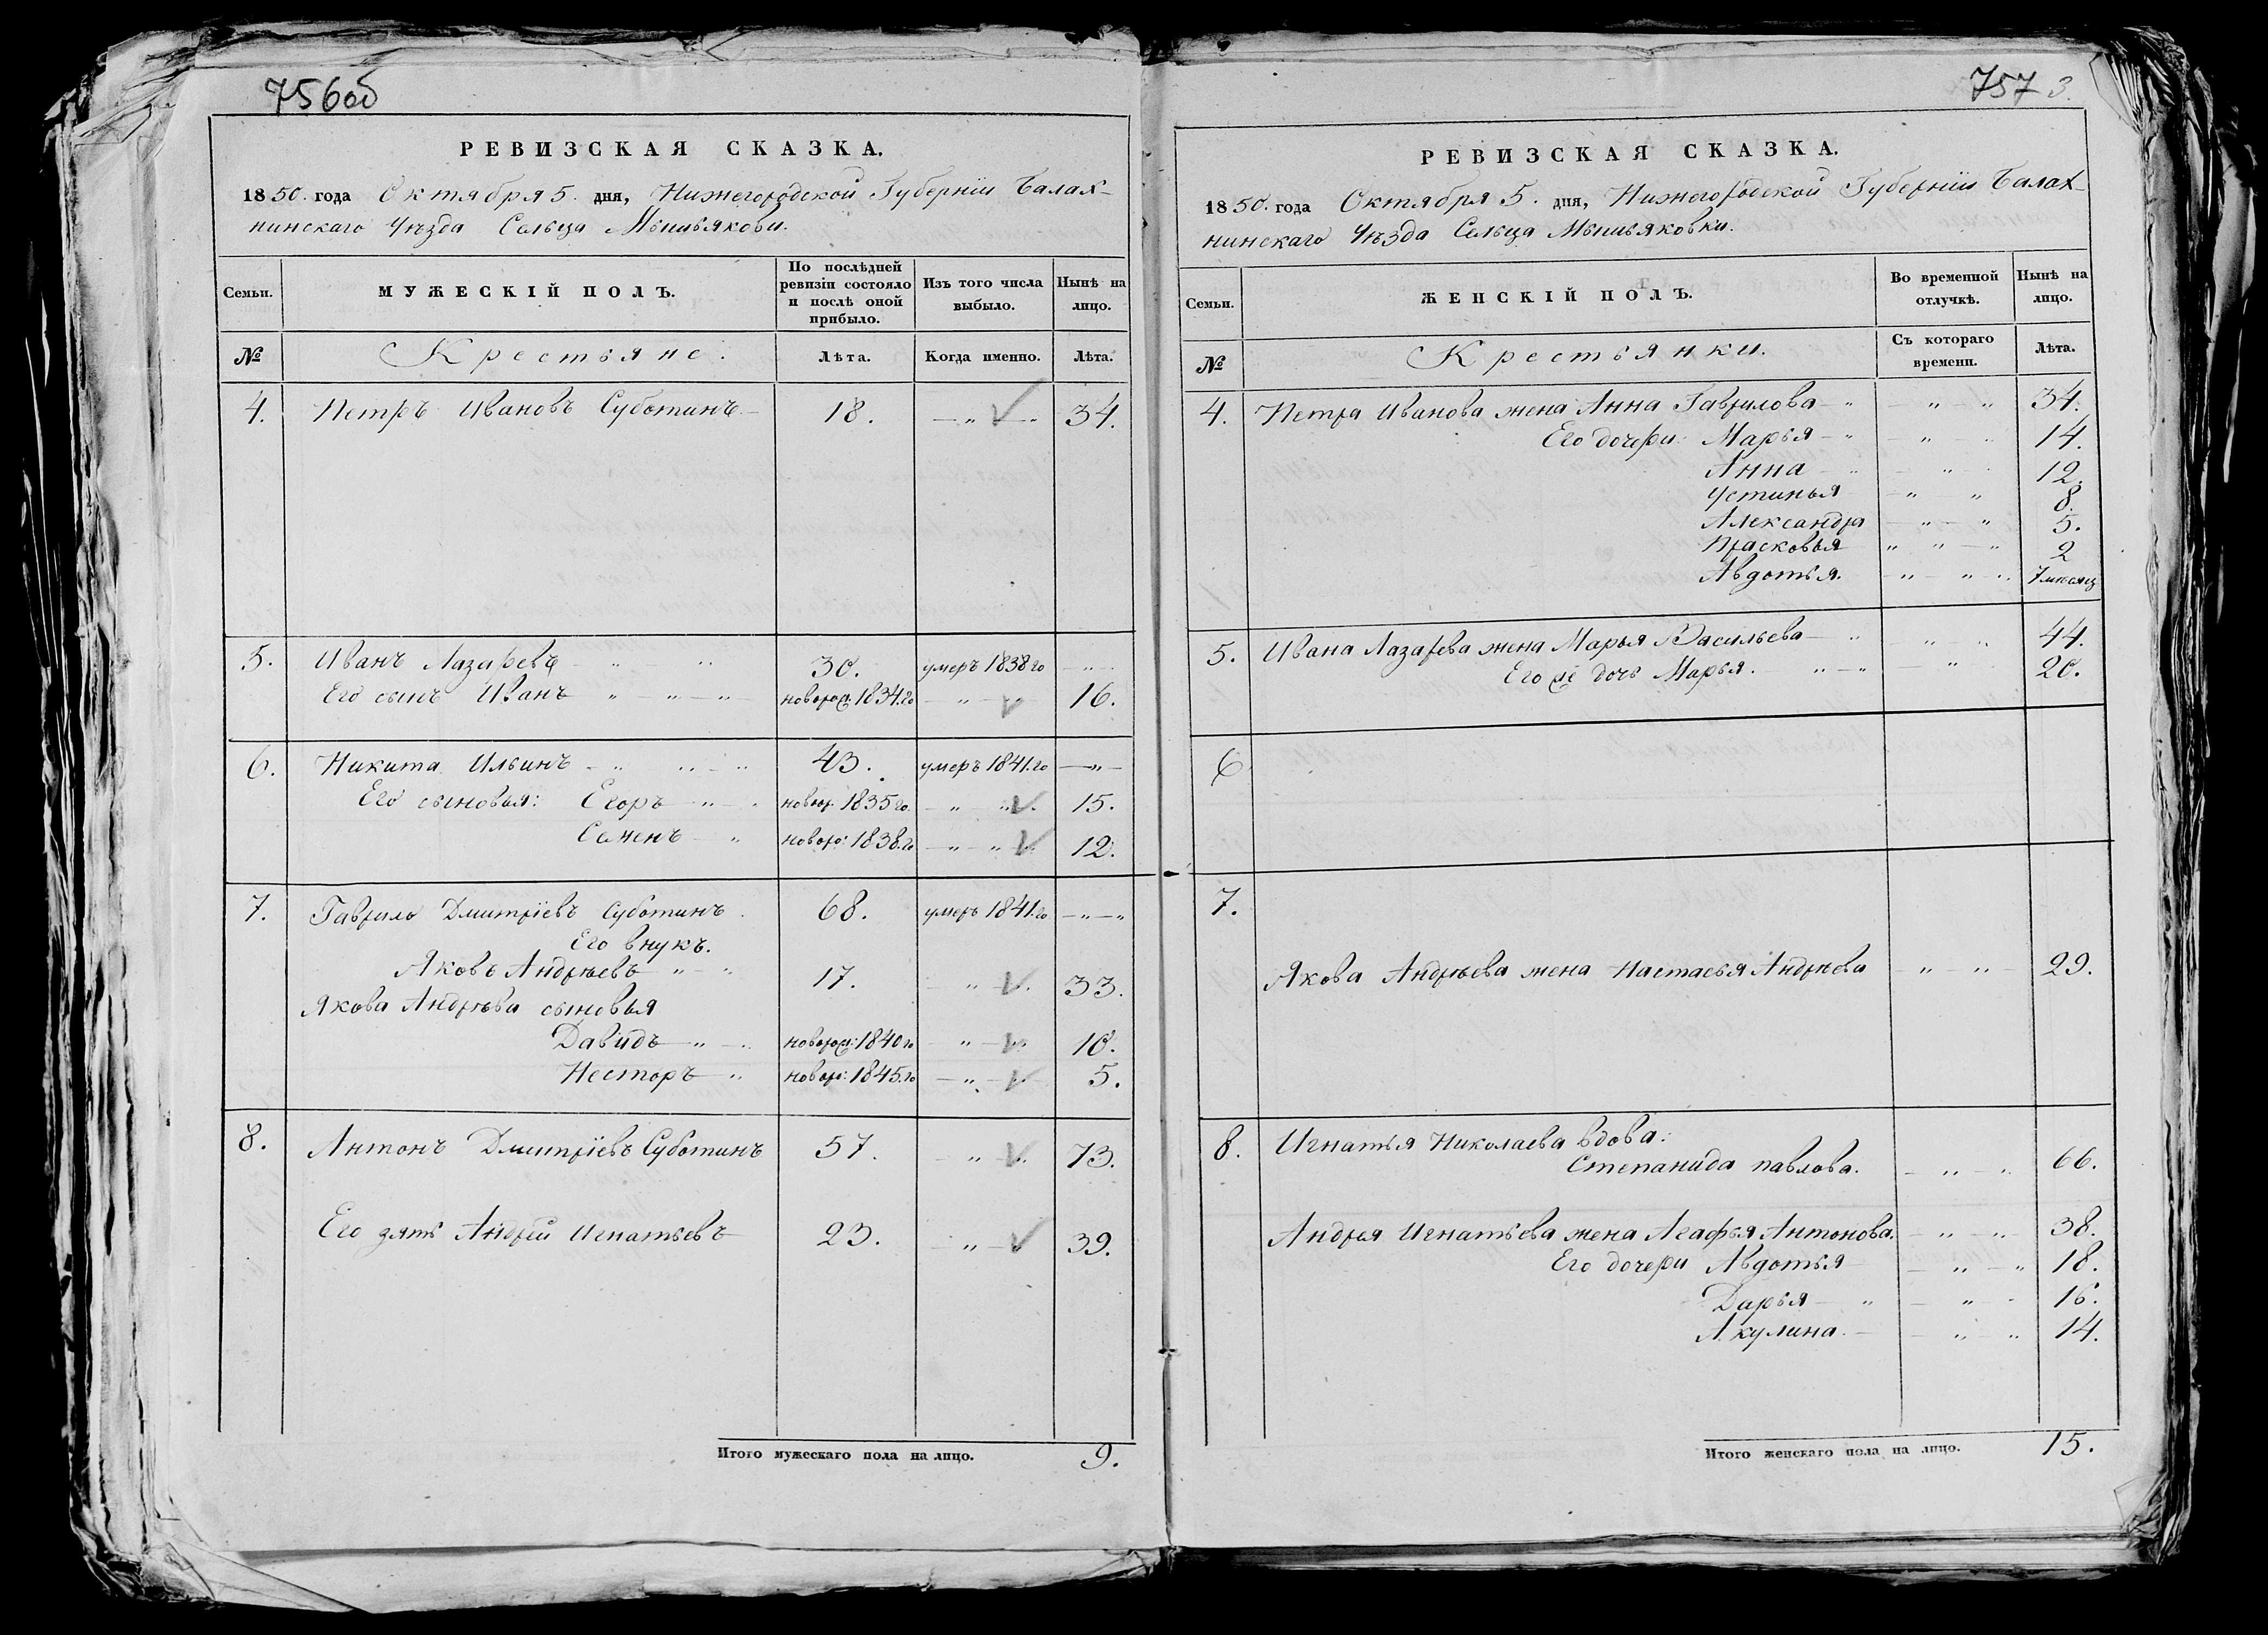 756об
РЕВИЗСКАЯ СКАЗКА.
1850. года Октября 5. дня, Нижегородской Губернiи Балах-
нинскаго Уѣзда Сельца
Семьи.
МУЖЕСКІЙ ПОЛЪ.
По послѣдней ревизіи состояло и послѣ оной прибыло.
Изъ того числа выбыло.
Нынѣ на лицо.
№ Крестьяне. Лѣта. Когда именно. Лѣта.
4. Петръ Ивановъ Суботинъ 18. — „ — „ 34.
5. Иванъ Лазаревъ „ „ 30. умеръ 1838 го — „ —
Его сынъ Иванъ „ — „ — „ новорож: 1834. го — „ — 16.
6. Никита Ильинъ „ „ — „ 43. умеръ 1841. го — „ —
Его сыновья: Егоръ „ новор. 1835 го. — „ „ 15.
Семенъ — „ новоро: 1838. го — „ — „ 12.
7. Гаврило Дмитрiевъ Суботинъ 68. умеръ 1841. го — „ — „
Его внукъ.
Яковъ Андрѣевъ „ — „ 17. „ — 33.
Якова Андрѣва сыновья
Давидъ — „ новорож: 1840 го „ — 10.
Несторъ — „ новоро: 1845. го — „ — 5.
8. Антонъ Дмитрiевъ Суботинъ 57. „ — 73.
Его зять Андрей Игнатьевъ 23. „ — 39.
Итого мужескаго пола на лицо. 9.
757 3.
РЕВИЗСКАЯ СКАЗКА.
1850. года Октября 5. дня, Нижегородской Губернiи Балах-
нинскаго Уѣзда Сельца
Семьи.
ЖЕНСКІЙ ПОЛЪ.
Во временной отлучкѣ.
Нынѣ на лицо.
№ Крестьянки. Съ котораго времени. Лѣта.
4. Петра Иванова жена Анна Гаврилова — „ „ — „ 34.
Его дочери: Марья — „ — „ — „ 14.
Анна — „ — „ — 12.
Устинья — „ — „ 8.
Александра — „ — „ 5.
Прасковья „ „ — „ 2
Авдотья. — „ — „ 7 месяц
5. Ивана Лазарева жена Марья Васильева — „ „ „ 44.
Его же дочь Марья. — „ — „ — „ 20.
6
7.
Якова Андрѣева жена Настасья Андрѣева — „ — „ 29.
8. Игнатья Николаева вдова:
Степанида павлова. — „ — „ 66.
Андрея Игнатьева жена Агафья Антонова. — „ — „ 38.
Его дочери Авдотья — „ — „ 18.
Дарья — „ — „ — 16.
Акулина. — — „ — „ 14.
Итого женскаго пола на лицо. 15.